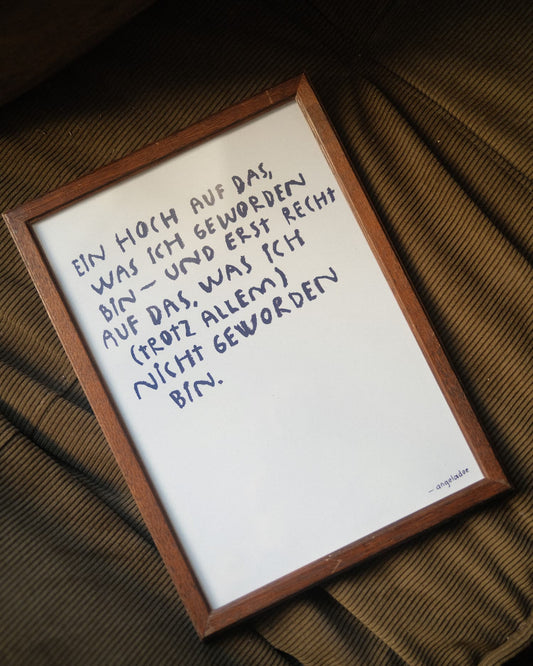 EIN HOCH AUF DAS,
WAS ICH GEWORDEN
BIN – UND ERST RECHT
AUF DAS, WAS ICH
(TROTZ ALLEM)
NICHT GEWORDEN
BIN.
– angeladoe